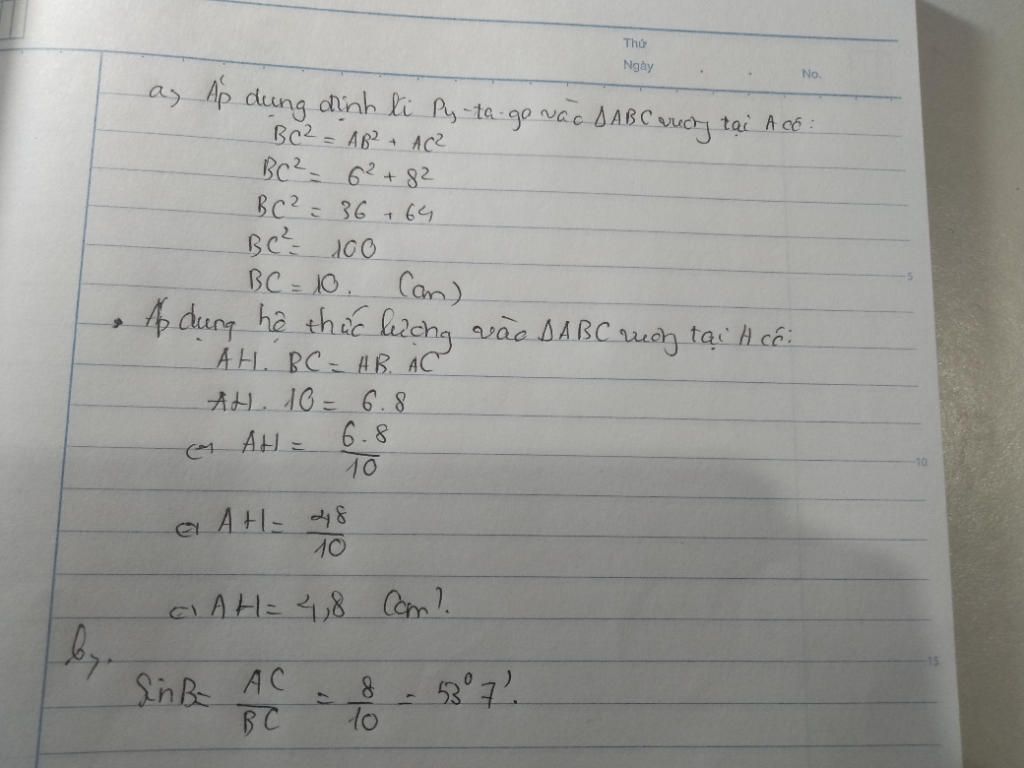 Thứ
Ngày . . No.
a, Áp dụng định lí Py-ta-go vào ΔABC vuông tại A có:
BC² = AB² + AC²
BC² = 6² + 8²
BC² = 36 + 64
BC² = 100
5
BC = 10. (cm)
• Áp dụng hệ thức lượng vào ΔABC vuông tại H có:
AH. BC = AB. AC
AH. 10 = 6.8
⇔ AH = 6.8/10
10
⇔ AH = 48/10
⇔ AH = 4,8 (cm).
b,.
15
SinB = AC/BC = 8/10 = 53°7'.